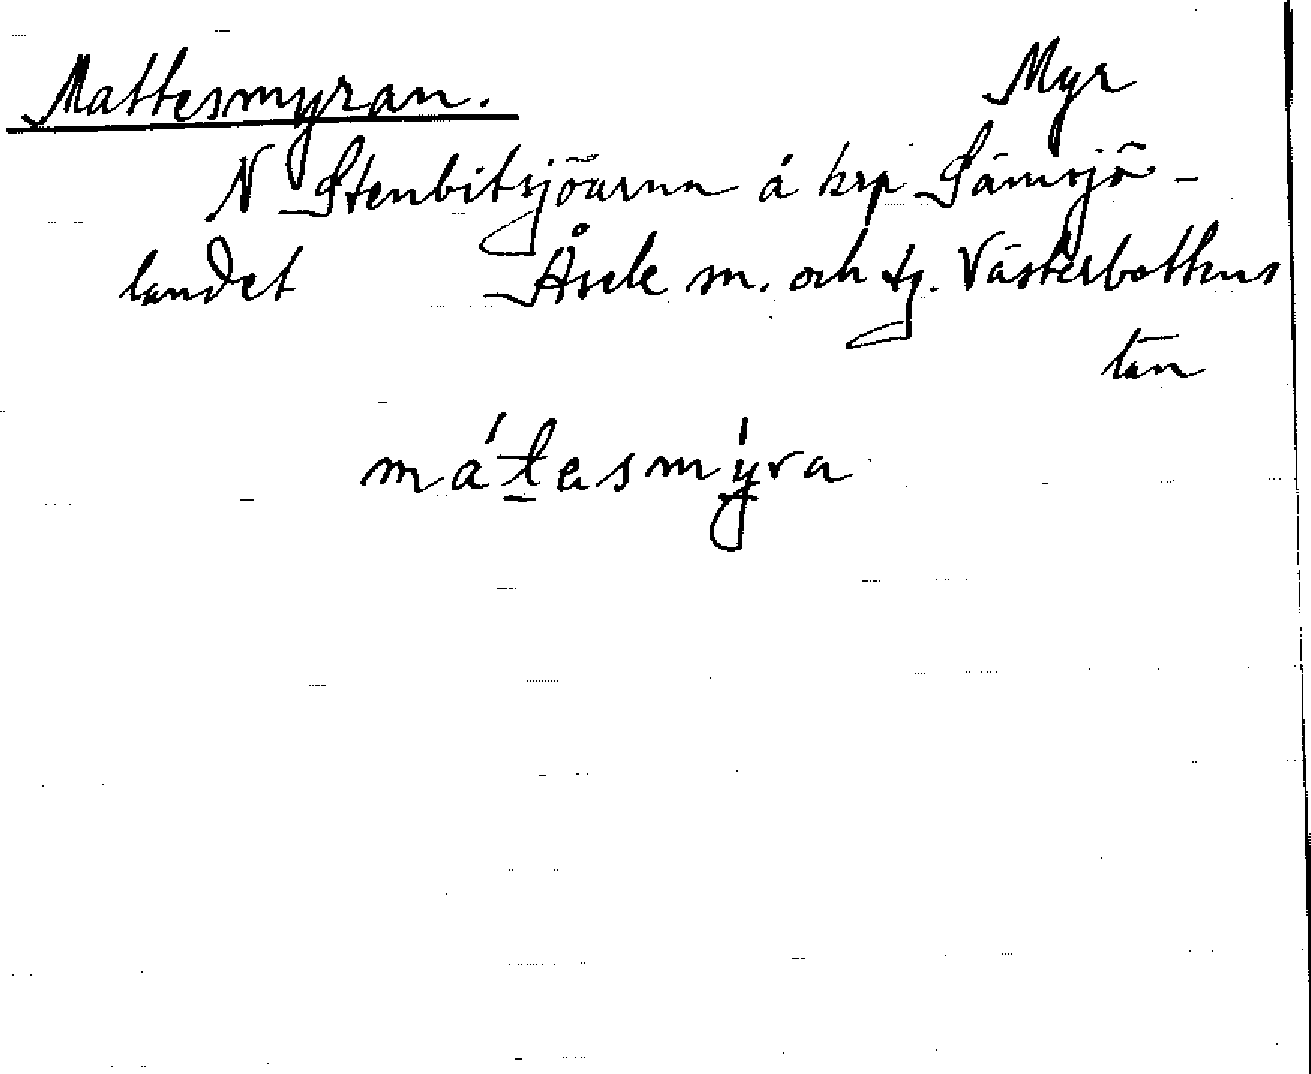 Mattesmyran. Myr
N Stenbitsjöarna å krp Sämsjö-
landet Åsele sn. och tg. Västerbottens
län
mátesmýra